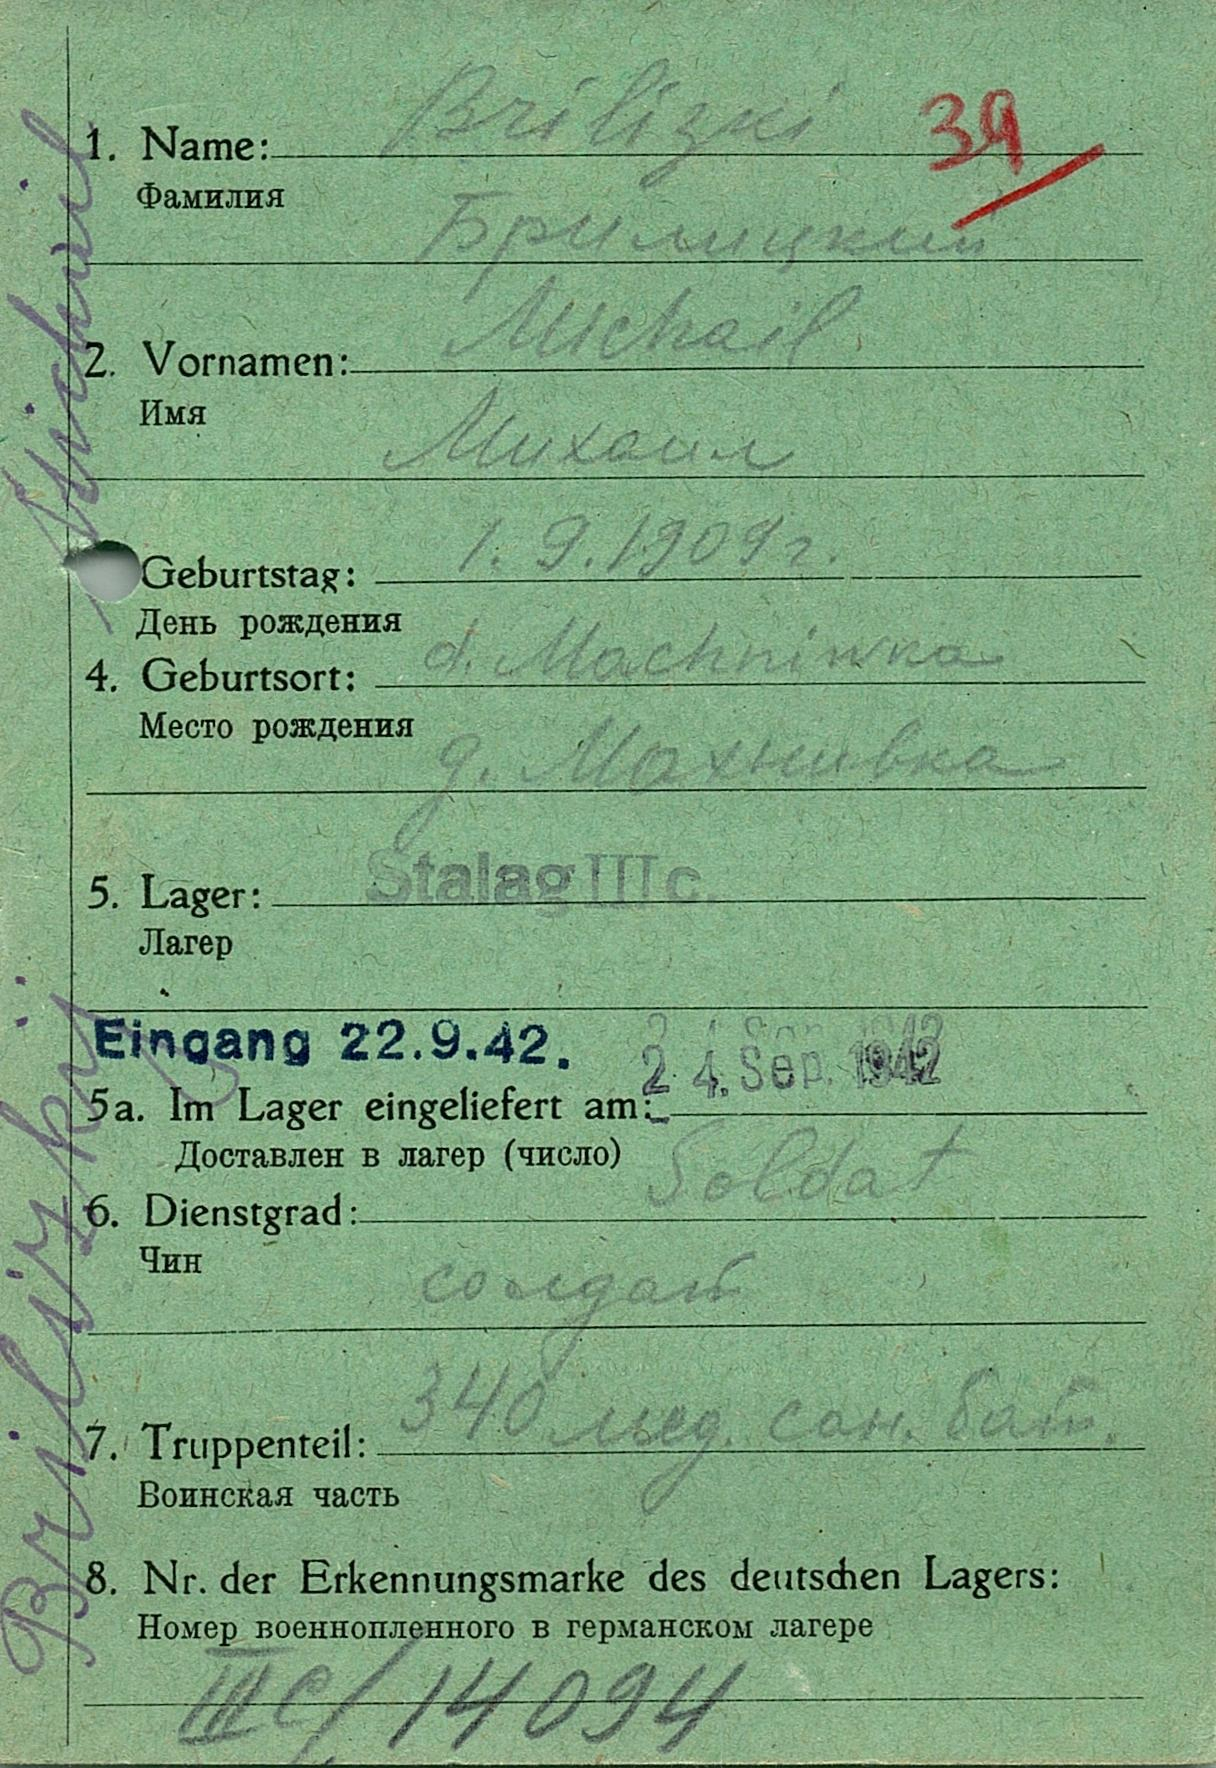 Brilizki
39
1. Name:
Фамилия
Брилицкий
Michail
2. Vornamen:
Имя
Михаил
1. 9. 1909 г.
Geburtstag:
День рождения
d. Machniwka
4. Geburtsort:
Место рождения
д. Махнивка
Stalag III c.
5. Lager:
Лагер
Eingang 22.9.42.
24. Sep. 1942
5a. Im Lager eingeliefert am:
Доставлен в лагер (число)
Soldat
6. Dienstgrad:
Чин
солдат
340 мед. сан. бат.
7. Truppenteil:
Воинская часть
8. Nr. der Erkennungsmarke des deutschen Lagers:
Номер военнопленного в германском лагере
III C/14094
Brilizkij Michail